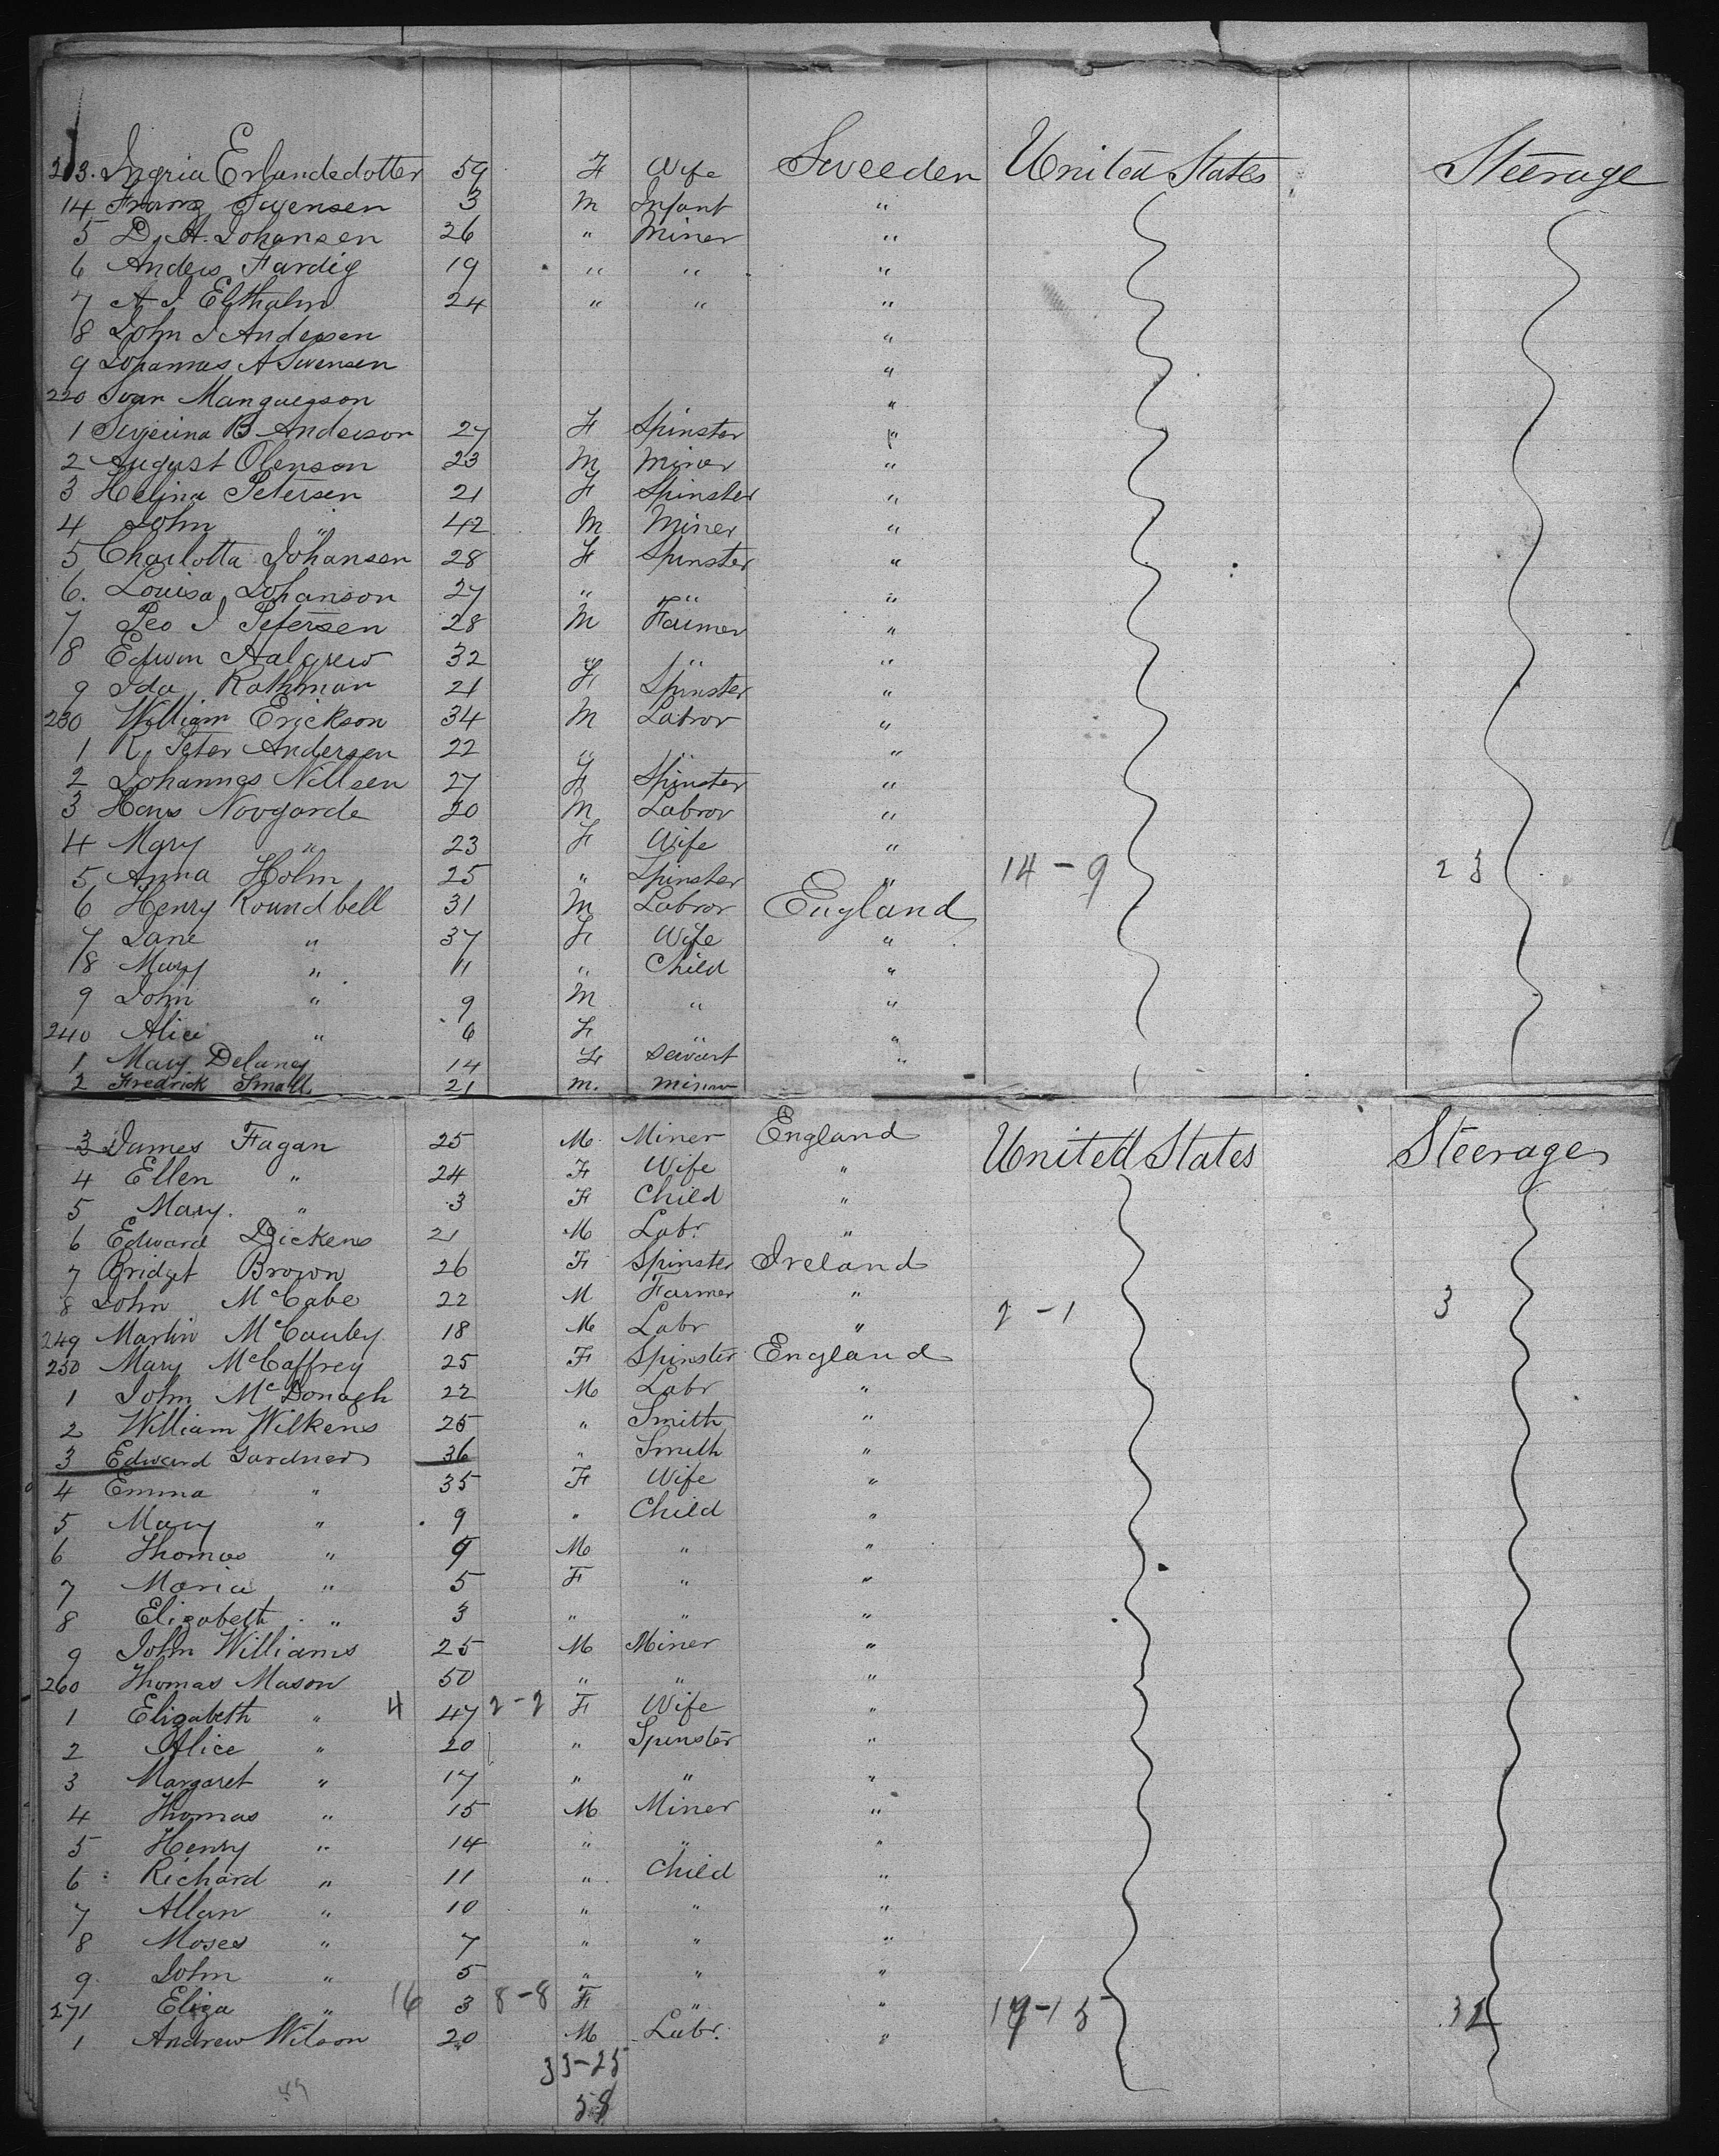 213. Ingria Erlandsdotter 59 F Wife Sweeden United States Steerage
14 Franz Swensen 3 M Infant "
5 D. A. Johansen 26 " Miner "
6 Anders Fardig 19 " " "
7 A J Elgtholm 24 " " "
8 John J Andersen "
9 Johannes A Swensen "
220 Svan Manguerson "
1 Severina B Anderson 27 F Spinster "
2 August Olenson 23 M Miner "
3 Helina Petersen 21 F Spinster "
4 John " 42 M Miner "
5 Charlotta Johansen 28 F Spinster "
6. Louisa Johanson 27 " " "
7 Peo J Petersen 28 M Farmer "
8 Edwin Aalgrew 32 " " "
9 Ida Rathman 21 F Spinster "
230 William Erickson 34 M Labror "
1 R Peter Andersen 22 " " "
2 Johannes Nillsen 27 F Spinster "
3 Hans Novgarde 20 M Labror "
4 Mary " 23 F Wife "
5 Anna Holm 25 " Spinster " 14-9 23
6 Henry Roundbell 31 M Labror England
7 Jane " 37 F Wife "
8 Mary " 11 " Child "
9 John " 9 M " "
240 Alice " 6 F " "
1 Mary Delaney 14 F servant "
2 Fredrick Small 21 m. miner
3 James Fagan 25 M Miner England United States Steerage
4 Ellen " 24 F Wife "
5 Mary. " 3 F Child "
6 Edward Dickens 21 M Labr. "
7 Bridget Brown 26 F Spinster Ireland
8 John McCabe 22 M Farmer " 2-1 3
249 Martin McCauley 18 M Labr "
250 Mary McCaffrey 25 F Spinster England
1 John McDonagh 22 M Labr "
2 William Wilkens 25 " Smith "
3 Edward Gardner 36 " Smith "
4 Emma " 35 F Wife "
5 Mary " 9 " Child "
6 Thomas " 9 M " "
7 Maria " 5 F " "
8 Elizabeth " 3 " " "
9 John Williams 25 M Miner "
260 Thomas Mason 50 " " "
1 Elizabeth " 4 47 2-2 F Wife "
2 Alice " 20 " Spinster "
3 Margaret " 17 " " "
4 Thomas " 15 M Miner "
5 Henry " 14 " " "
6 Richard " 11 " Child "
7 Allan " 10 " " "
8 Moses " 7 " " "
9. John " 5 " " "
271 Eliza " 16 3 8-8 F " " 17-15 32
1 Andrew Wilson 20 M Labr. "
33-25
58